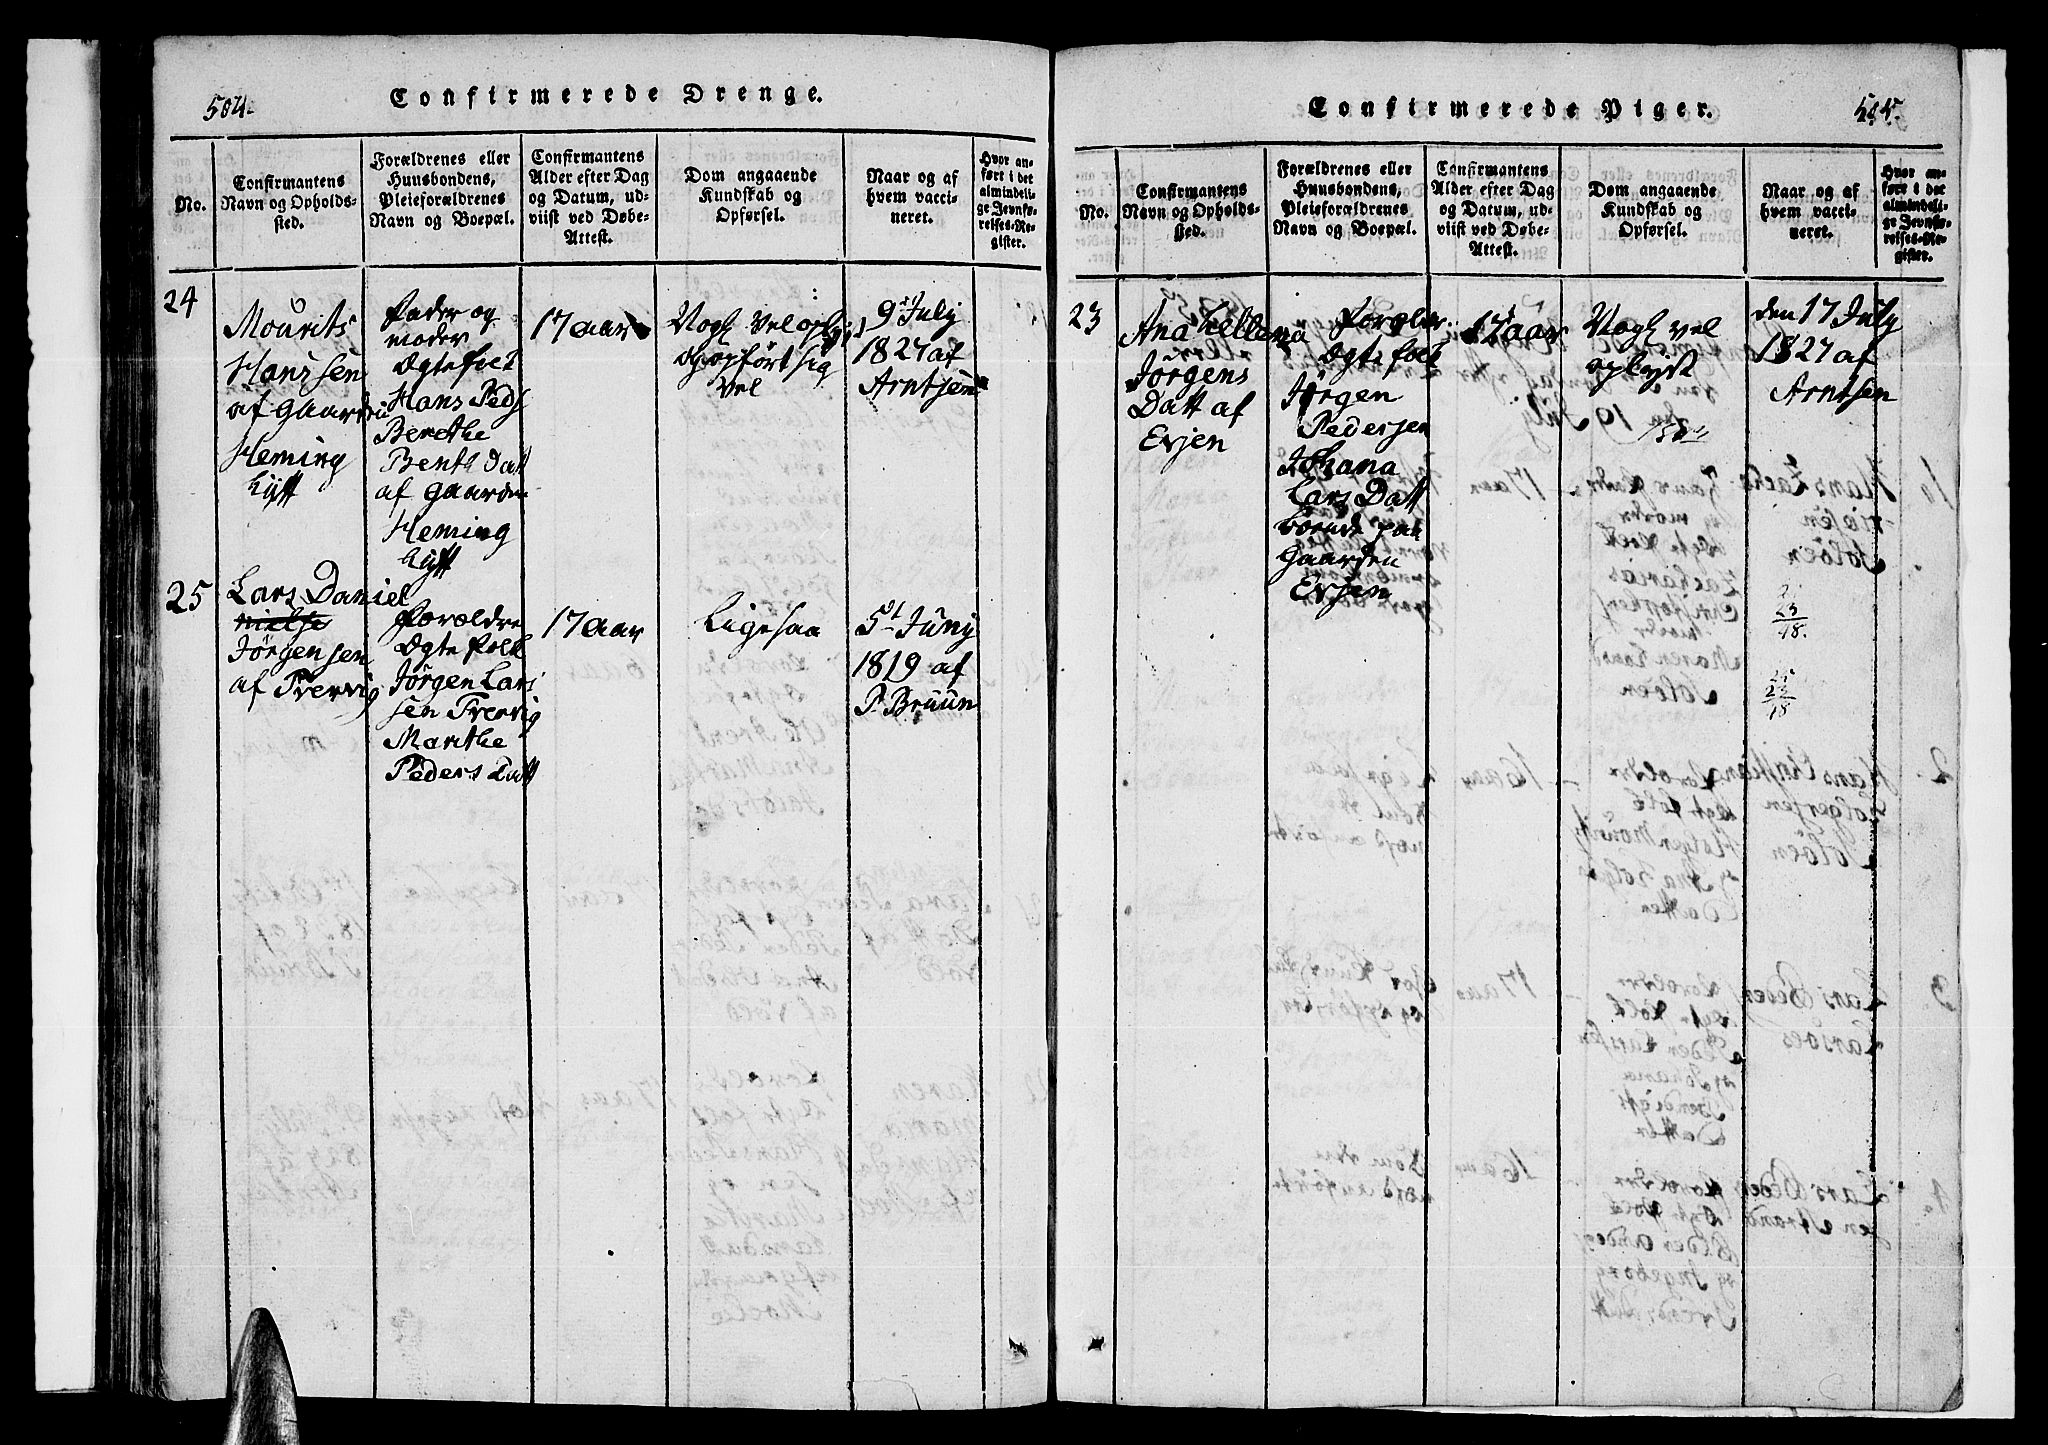 584.
Confirmerede Drenge.
No.
Confirmantens
Navn og Opholds-
sted.
Forældrenes eller
Huusbondens,
Pleieforældrenes
Navn og Boepæl.
Confirmantens
Alder efter Dag
og Datum, ud-
viist ved Døbe-
Attest.
Dom angaaende
Kundskab og
Opførsel.
Naar og af
hvem vacci-
neret.
Hvor an-
ført i det
almindeli-
ge Jevnfø-
relses-Re-
gister.
24
Mourits
Hanssen
af Gaarden
Heming
Lytt
Fader og
moder
Ægte folk
Hans Peds
Berethe
Bents Datt
af Gaarden
Heming
Lytt
17 aar
Nogl vel oplyst
og opført sig
vel
9d July
1827 af
Arntsen
25
Lars Daniel
Jörgensen
af Trervig
Forældre
Ægte Folk
Jörgen Lars
sen Trervig
Marithe
Peders Datt
17 aar
Ligesaa
5d Juny
1819 af
P. Bruun
Confirmerede Piger.
585.
No.
Confirmantens
Navn og Opholds-
sted.
Forældrenes eller
Huusbondens,
Pleieforældrenes
Navn og Boepæl.
Confirmantens
Alder efter Dag
og Datum, ud-
viist ved Døbe-
Attest.
Dom angaaende
Kundskab og
Opførsel.
Naar og af
hvem vacci-
neret.
Hvor an-
ført i det
almindeli-
ge Jevnfø-
relses-Re-
gister.
23
Ana Ellena
Jörgens
Datt af
Evjen
Forældr
Ægte folk
Jörgen
Pedersen
Johana
Lars Datt
boende paa
Gaarden
Evjen
17 aar
Nogl vel
oplyst
den 17 July
1827 af
Arntsen
25
23
48.
25
23
48